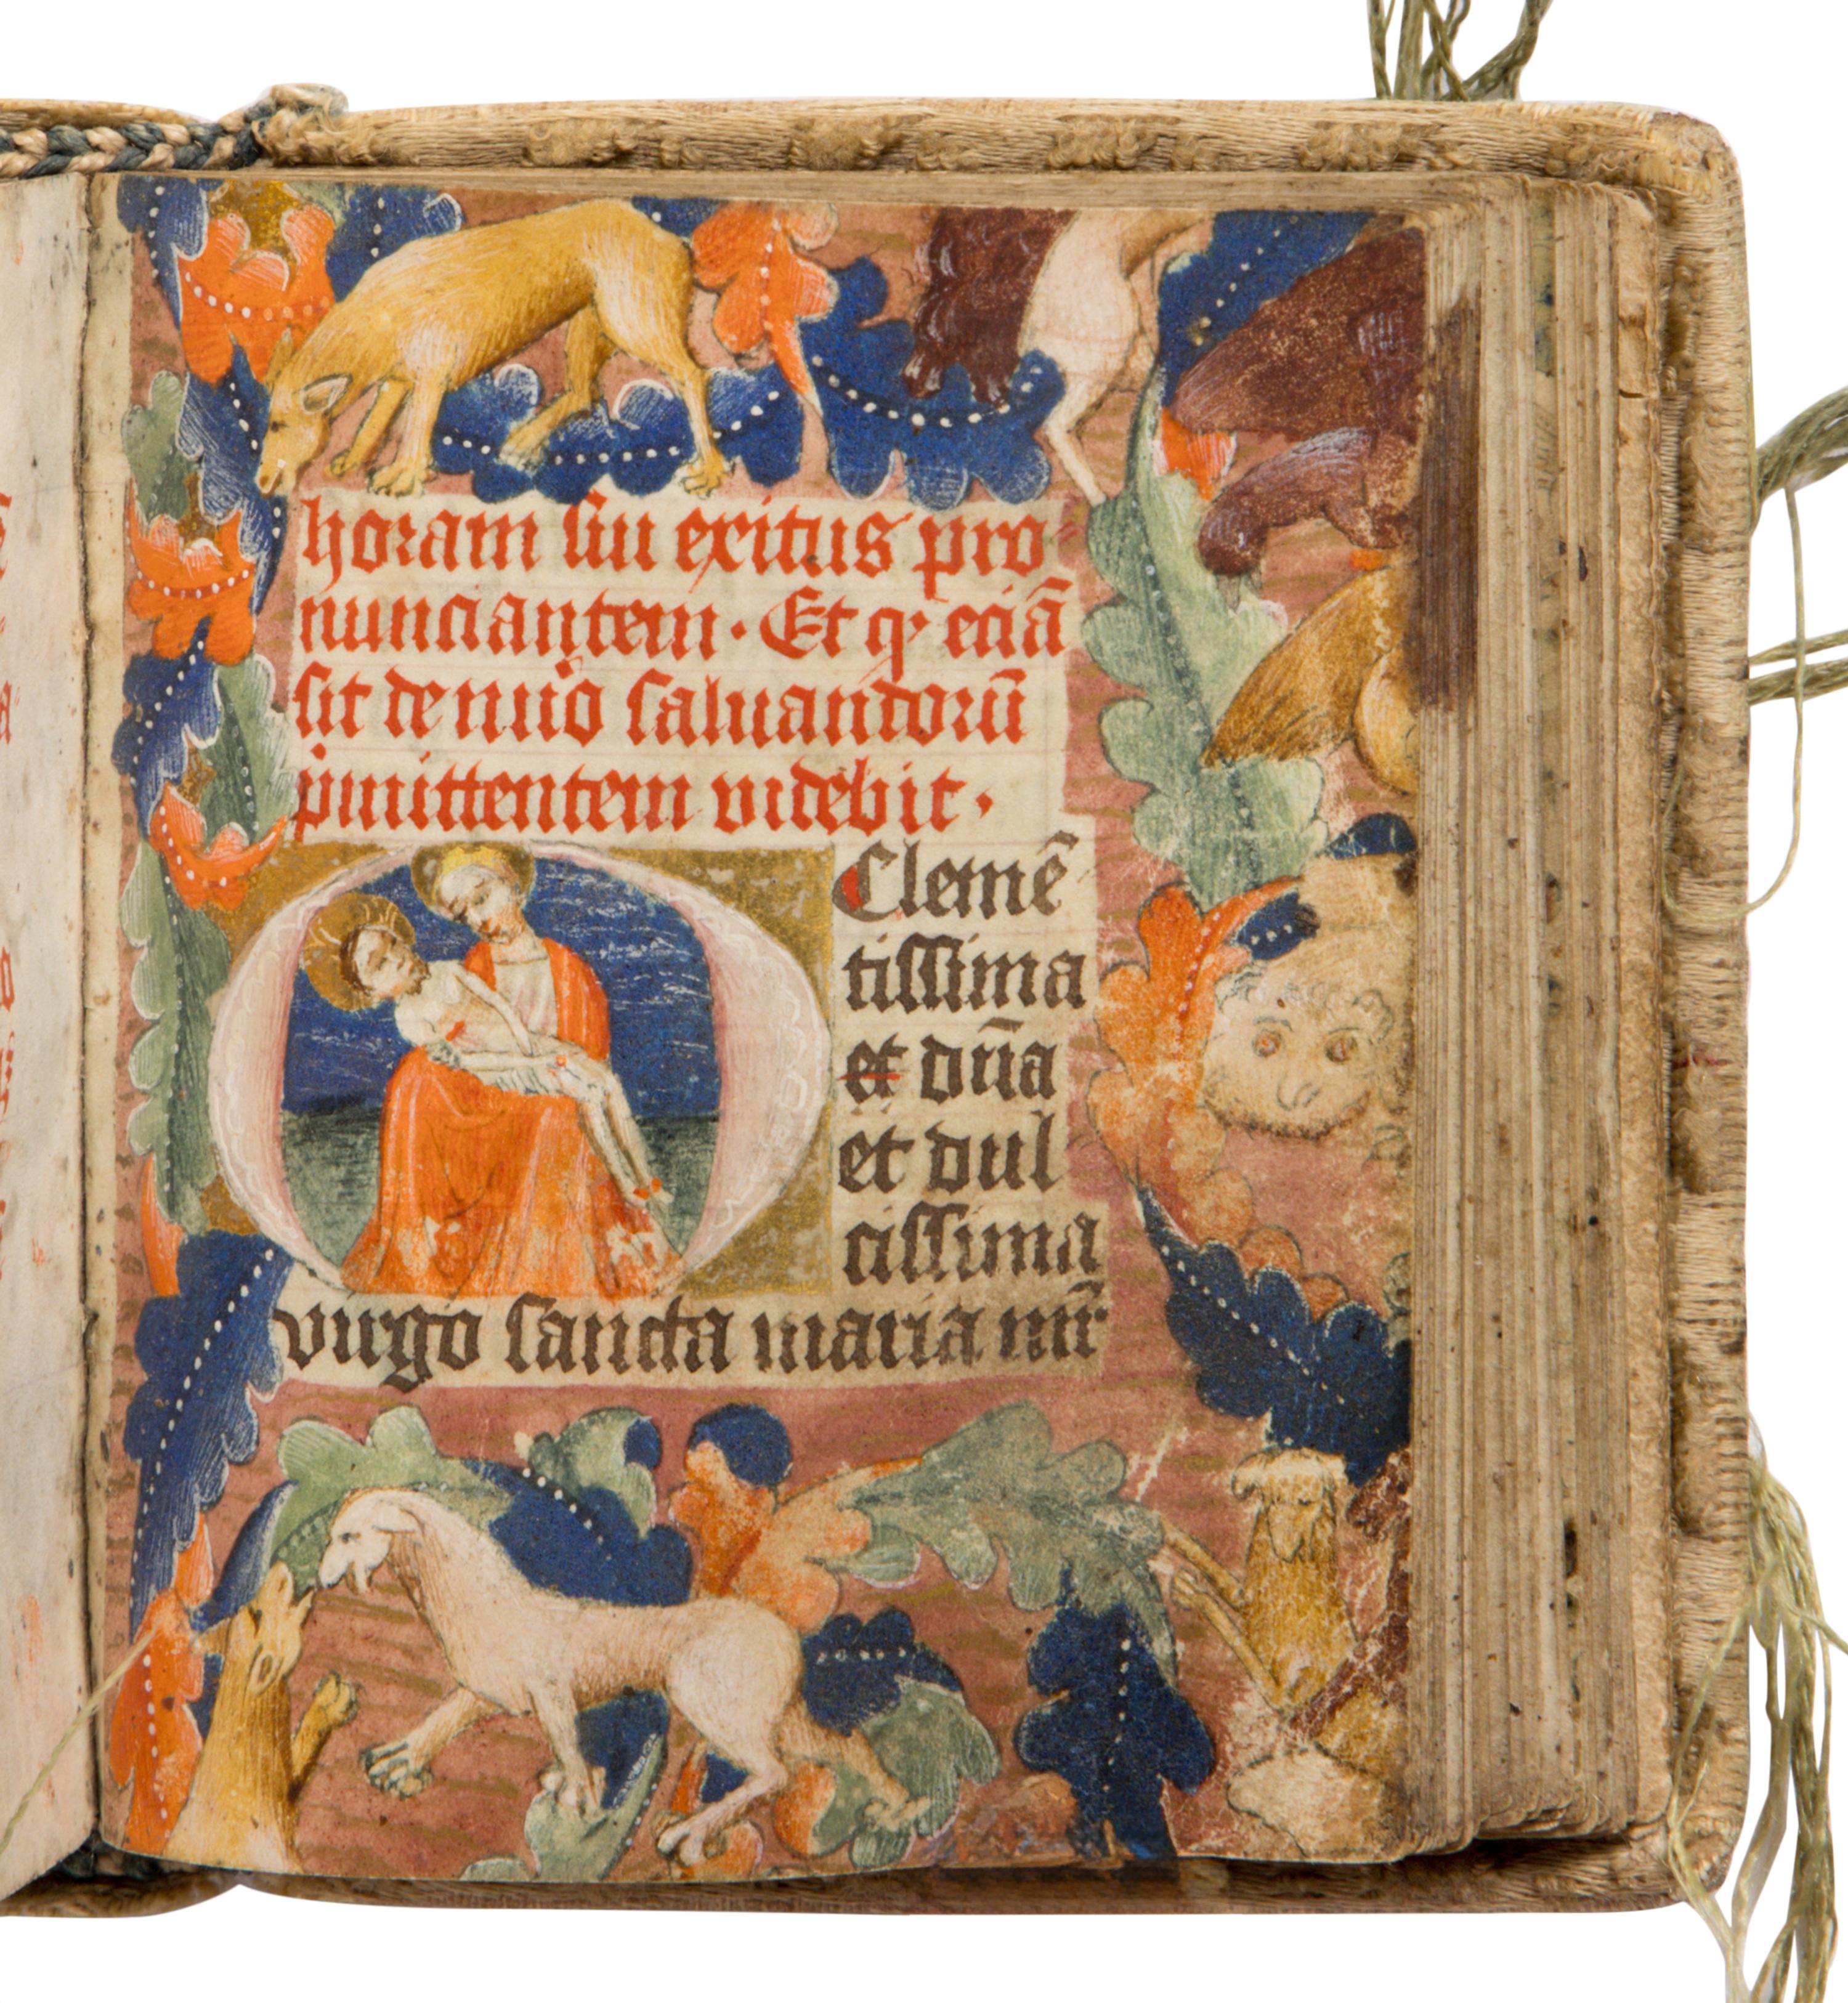 horam sui exitus pro-
nunciantem. Et qꝫ eciā
sit de nuo saluandorū
pmittentem videbit.
O Clemē
tissima
et dn̄a
et dul
cissima
virgo sancta maria mr̄